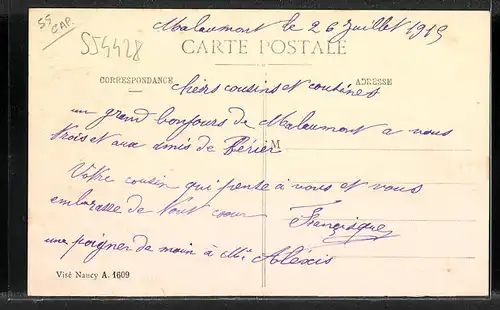 55
CAP.
554428
Malaumont le 26 Juillet 1915
CARTE POSTALE
CORRESPONDANCE
ADRESSE
chers cousins et cousines
un grand bonjours de Malaumont a vous
trois et aux amis de Ferier
M
Votre cousin qui pense à vous et vous
embrasse de tout coeur
Françisque
une poigner de main à Mr Alexis
Visé Nancy A. 1609